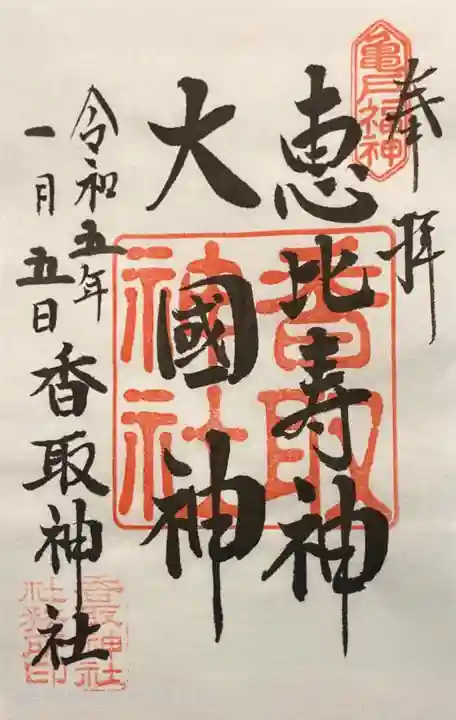 奉拝
亀戸福神
恵比寿神
大國神
香取神社
令和五年
一月五日
香取神社
香取神社